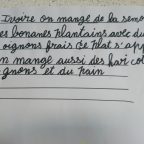 Ivoire on mange de la semo
es bananes plantains avec du
oignons frais ce plat s'app
n mange aussi des hari col
gnons et du pain